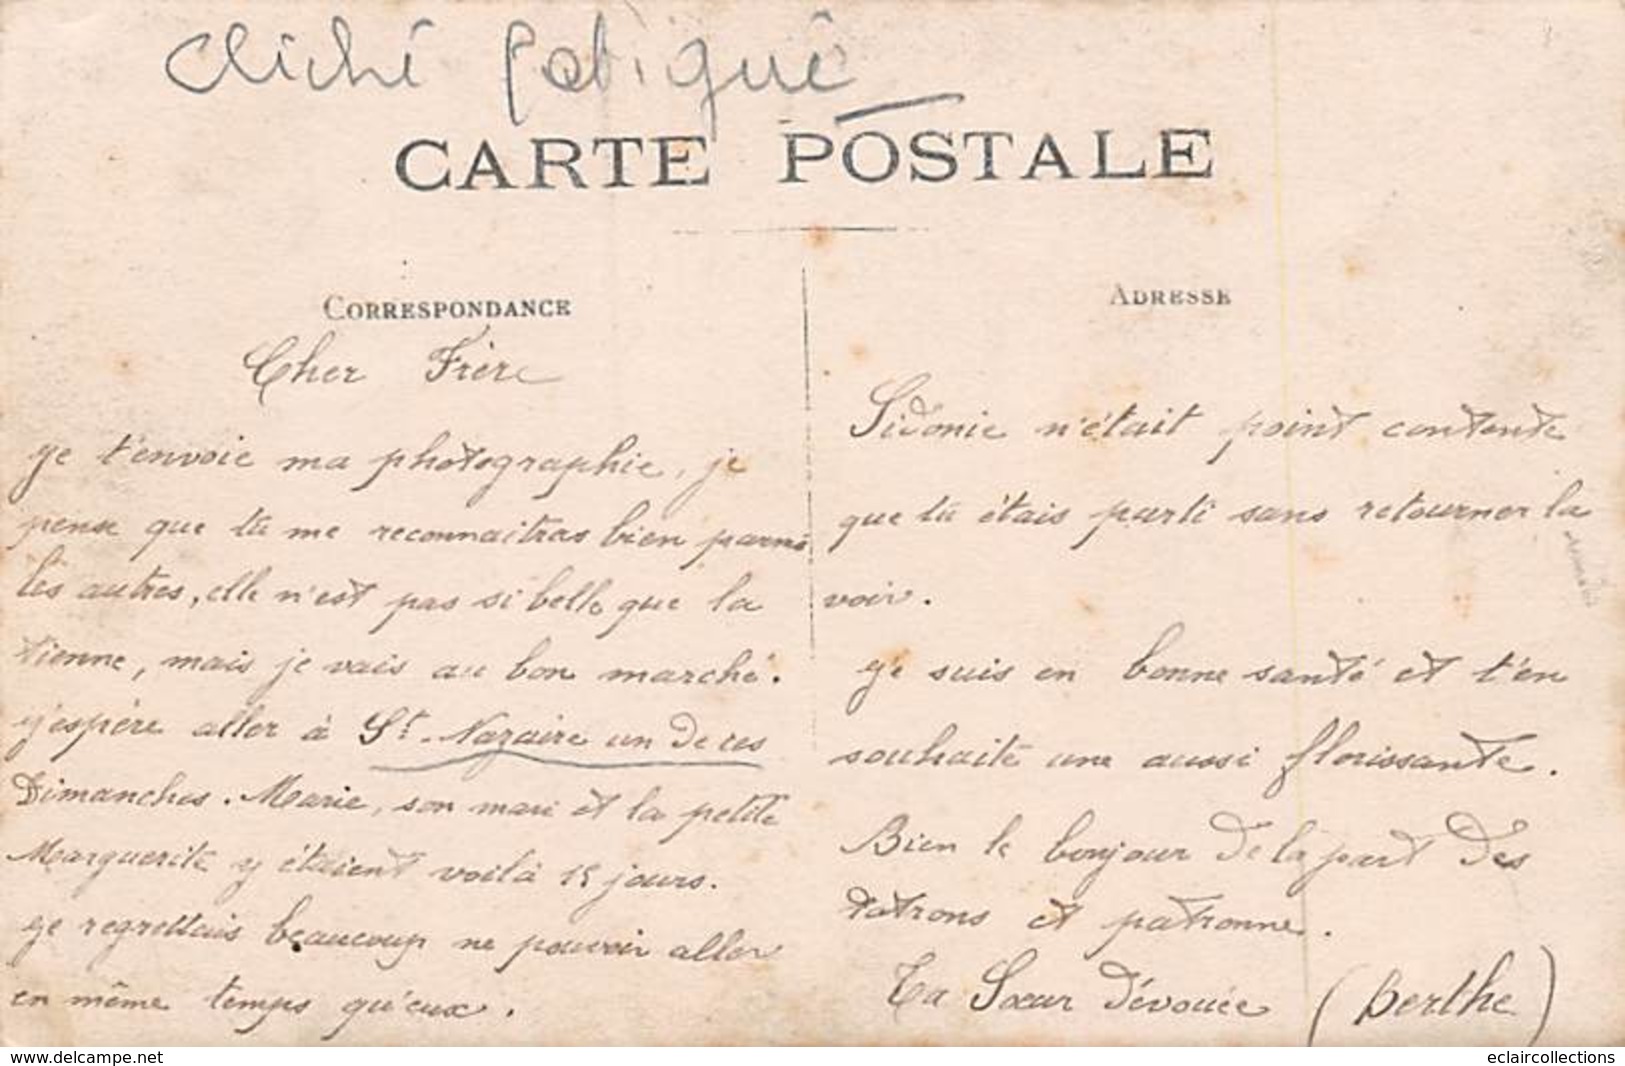 cliché fatigué
CARTE POSTALE
CORRESPONDANCE
Cher Frère
je t'envoie ma photographie, je
pense que tu me reconnaitras bien parmi
les autres, elle n'est pas si belle que la
tienne, mais je vais au bon marché.
j'espère aller à St. Nazaire un de ces
Dimanches. Marie, son mari et la petite
Marguerite y étaient voilà 15 jours.
je regrettais beaucoup ne pouvoir aller
en même temps qu'eux.
ADRESSE
Sidonie n'était point contente
que tu étais parti sans retourner la
voir.
je suis en bonne santé et t'en
souhaite une aussi florissante.
Bien le bonjour de la part des
patrons et patronne.
Ta Sœur dévouée (Berthe)
www.delcampe.net
eclaircollections